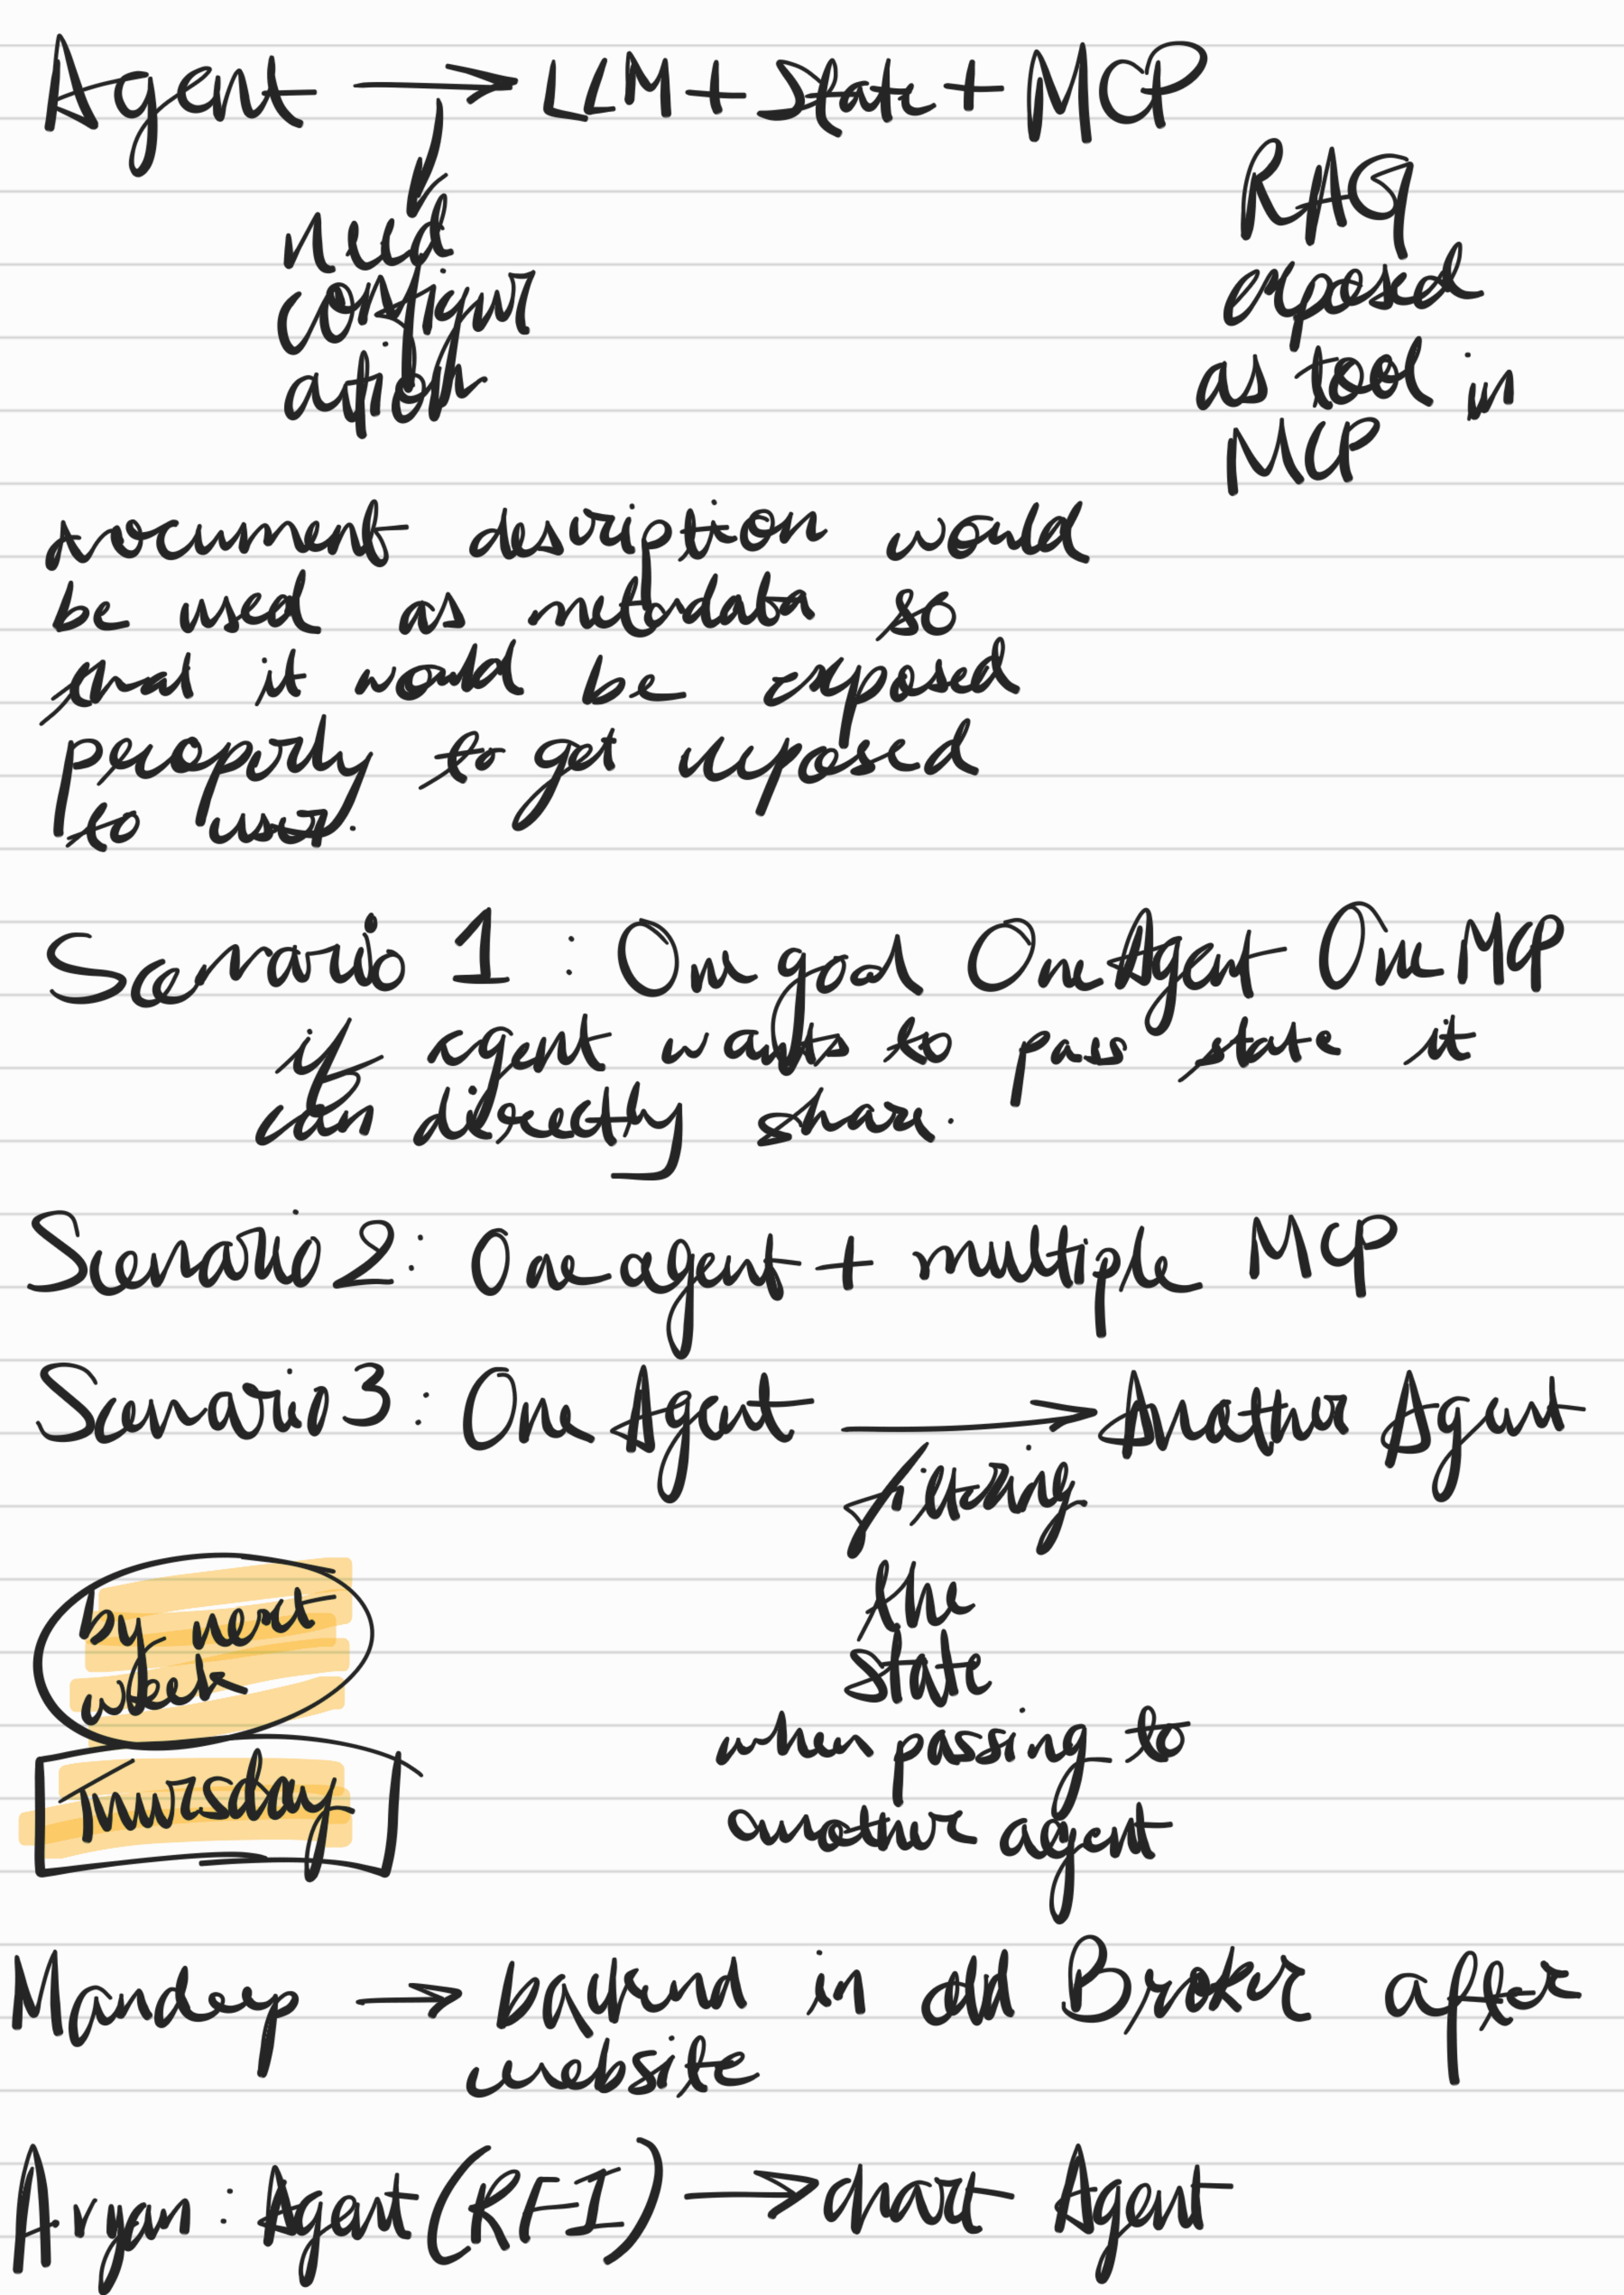 Agent → LLM + State + MCP
need
configur
ation
RAG
exposed
as tool in
MCP
document description would
be used as metadata so
that it would be exposed
properly to get exposed
to user.
Scenario 1 : One goal One Agent One MCP
if agent wants to pass state it
can directly share.
Scenario 2 : One agent + multiple MCP
Scenario 3 : One Agent → Another Agent
filtering
the
state
when passing to
another agent
by next
week
Thursday
Mandeep → backend in old Broker after
website
Aryan : Agent (RFI) → Agent